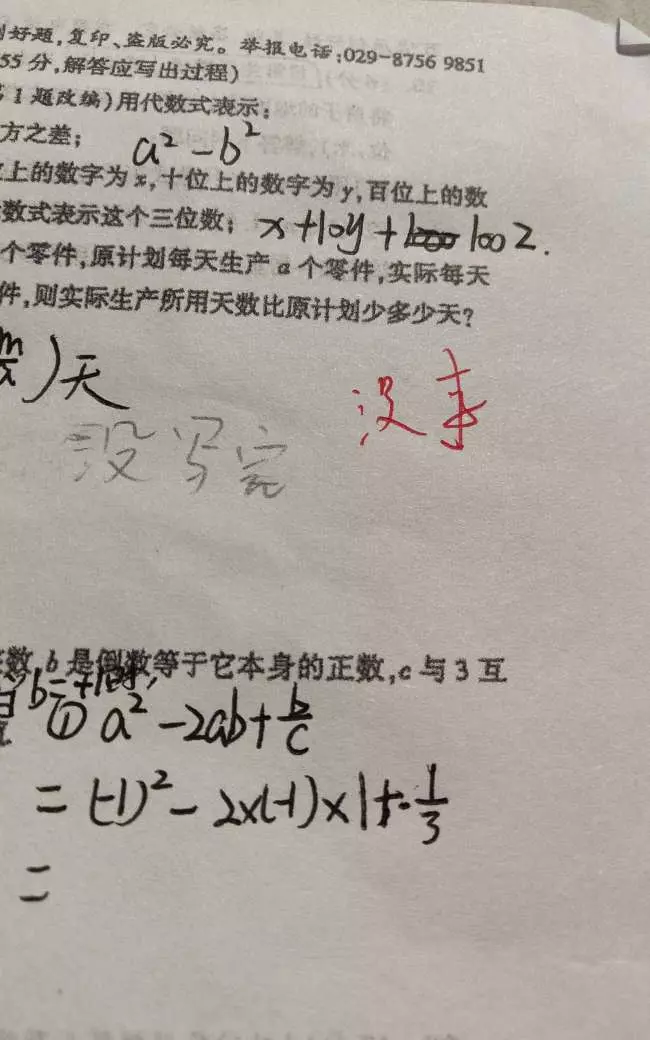 刂好题,复印、盗版必究。举报电话:029-8756 9851
55分,解答应写出过程)
1题改编)用代数式表示:
方之差; a²-b²
上的数字为x,十位上的数字为y,百位上的数
数式表示这个三位数; x+10y+100z.
个零件,原计划每天生产a个零件,实际每天
件,则实际生产所用天数比原计划少多少天?
)天
没事
没写完
数,b是倒数等于它本身的正数,c与3互
b=+1时,
① a²-2ab+b/c
=(-1)²-2×(-1)×1+-1/3
=